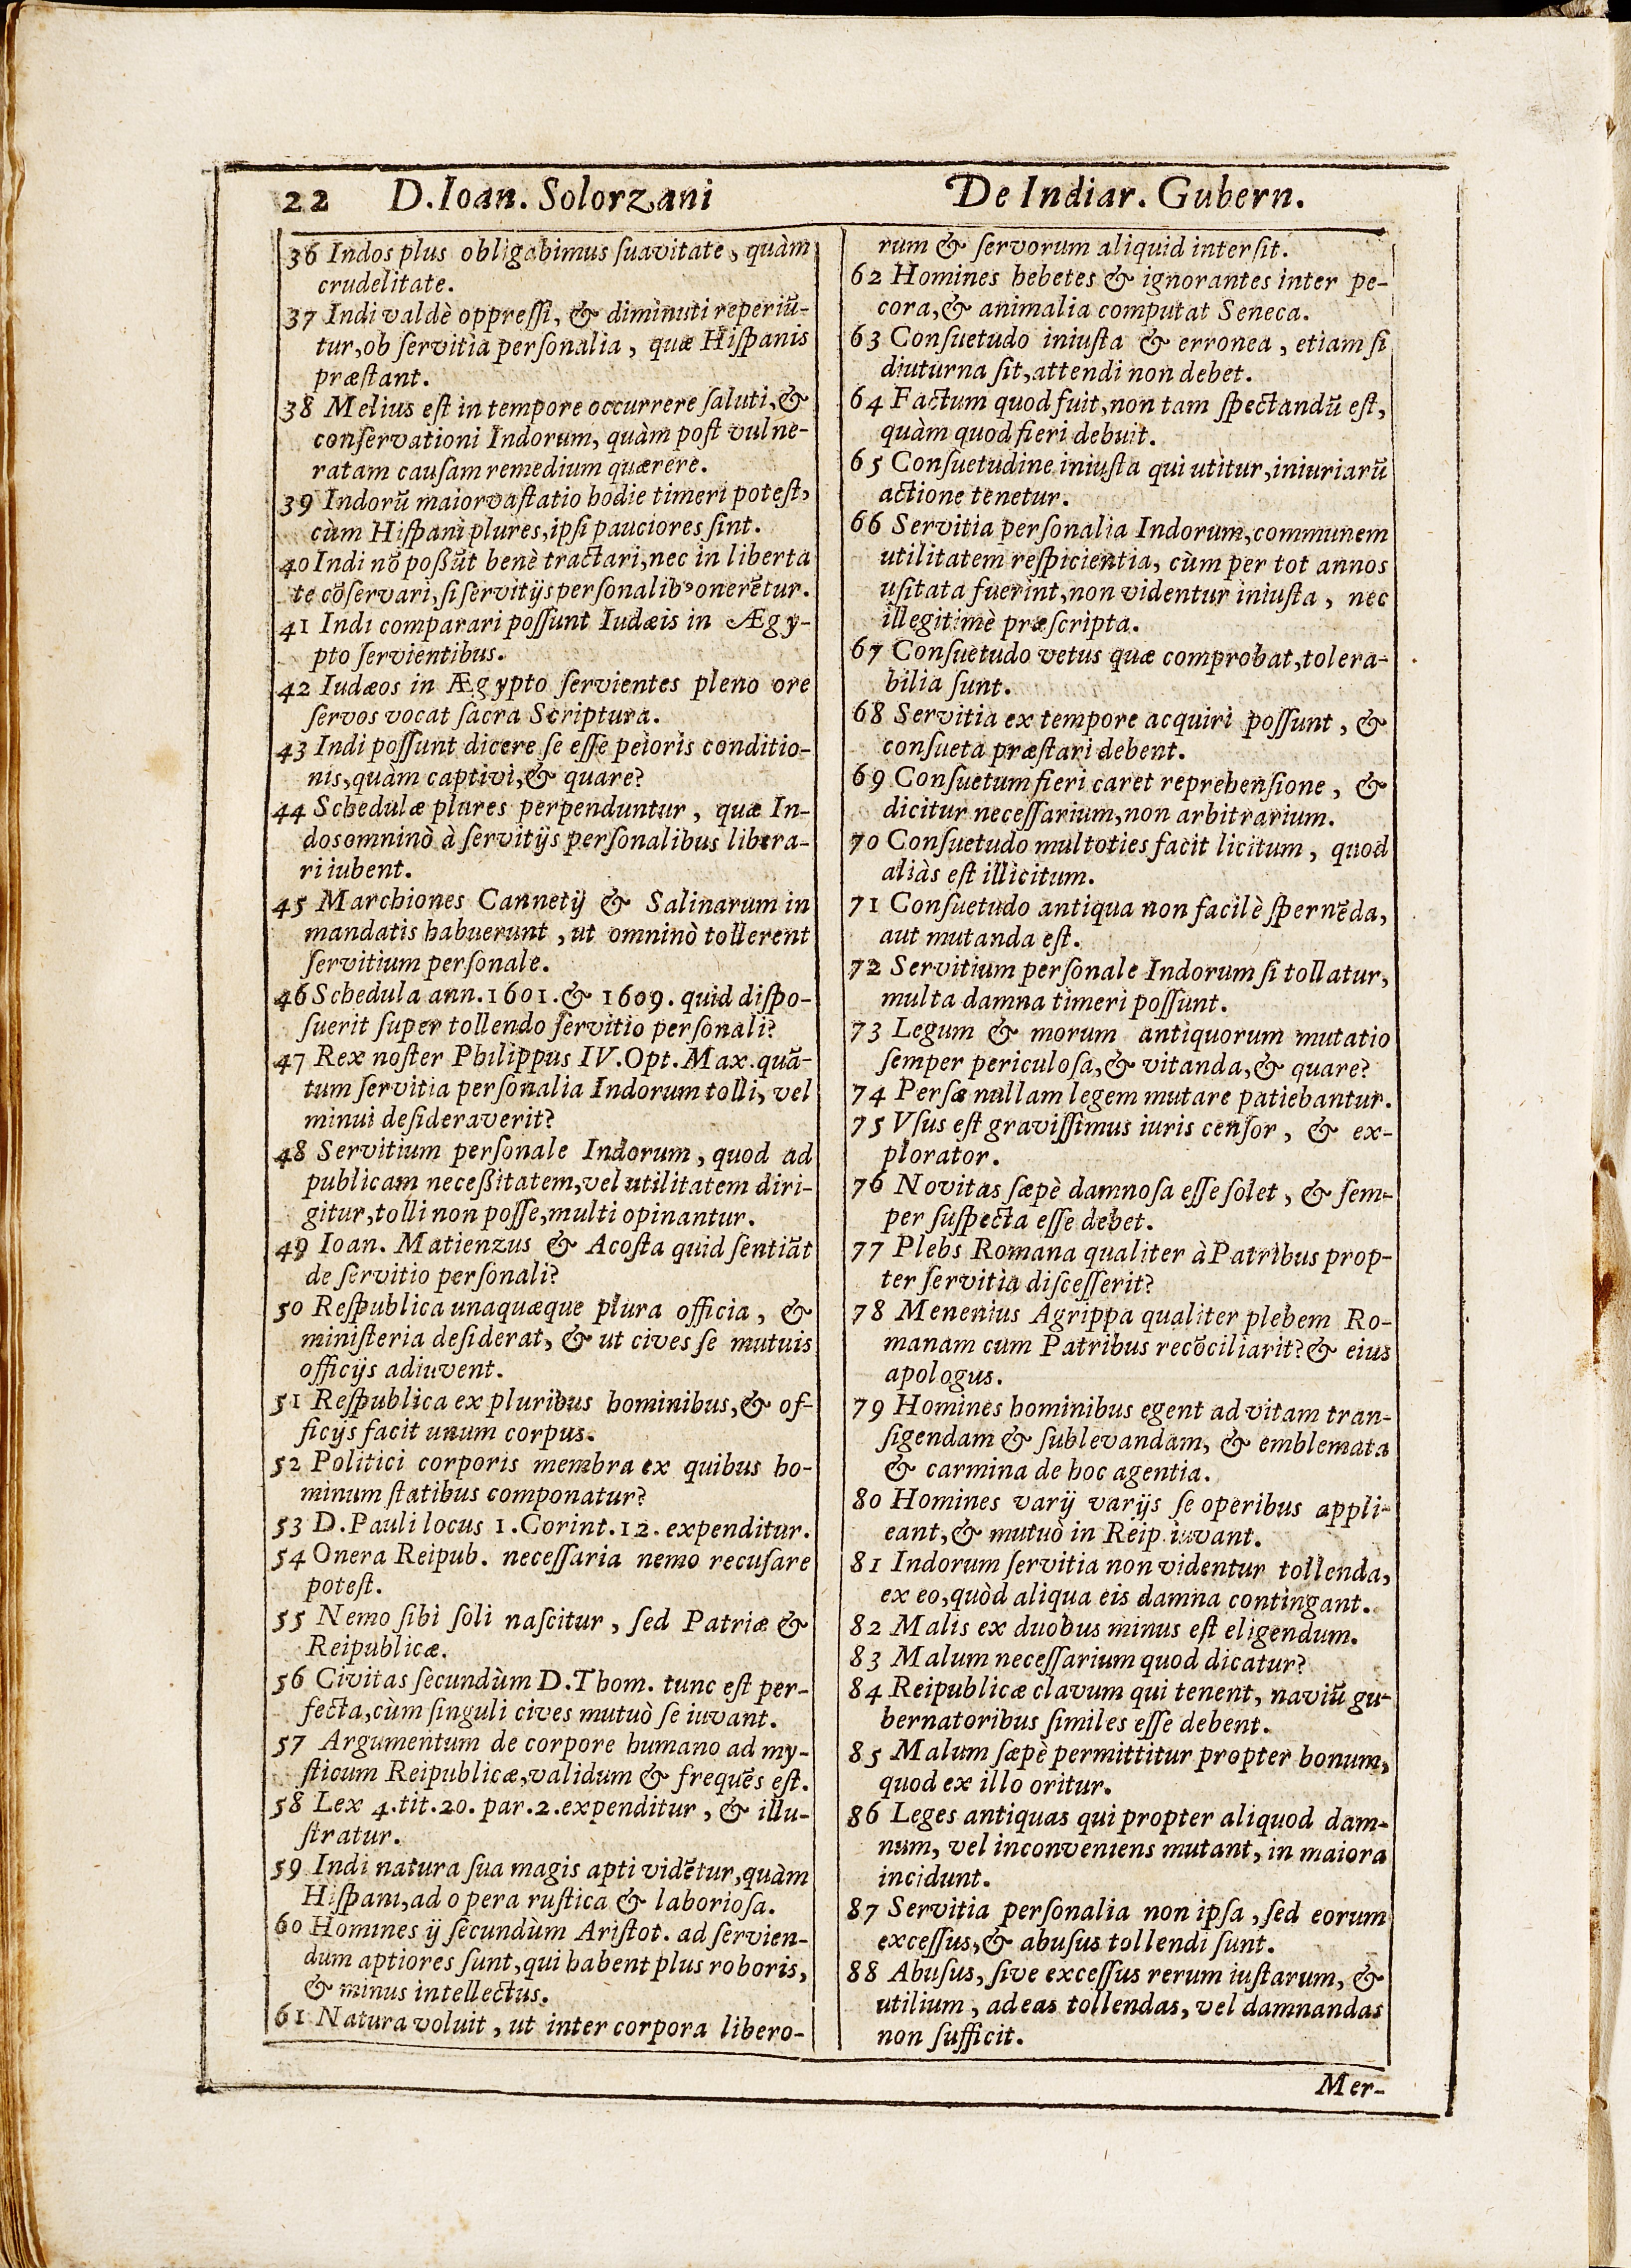 22 D.Ioan. Solorzani De Indiar. Gubern.
36 Indos plus obligabimus ſuavitate, quàm
crudelitate.
37 Indi valdè oppreſſi, & diminuti reperiũ-
tur,ob ſervitia perſonalia, quæ Hiſpanis
præſtant.
38 Melius eſt in tempore occurrere ſaluti,&
conſervationi Indorum, quàm poſt vulne-
ratam cauſam remedium quærere.
39 Indorũ maior vaſtatio hodie timeri poteſt,
cùm Hiſpani plures,ipſi pauciores ſint.
40 Indi nõ poßũt benè tractari,nec in liberta
te cõſervari, ſi ſervitijs perſonalibꝰ onerẽtur.
41 Indi comparari poſſunt Iudæis in Ægy-
pto ſervientibus.
42 Iudæos in Ægypto ſervientes pleno ore
ſervos vocat ſacra Scriptura.
43 Indi poſſunt dicere ſe eſſe peioris conditio-
nis,quàm captivi,& quare?
44 Schedulæ plures perpenduntur, quæ In-
dos omninò à ſervitijs perſonalibus libera-
ri iubent.
45 Marchiones Cannetij & Salinarum in
mandatis habuerunt, ut omninò tollerent
ſervitium perſonale.
46 Schedula ann.1601.& 1609. quid diſpo-
ſuerit ſuper tollendo ſervitio perſonali?
47 Rex noſter Philippus IV.Opt.Max.quã-
tum ſervitia perſonalia Indorum tolli, vel
minui deſideraverit?
48 Servitium perſonale Indorum, quod ad
publicam neceßitatem,vel utilitatem diri-
gitur,tolli non poſſe,multi opinantur.
49 Ioan. Matienzus & Acoſta quid ſentiãt
de ſervitio perſonali?
50 Reſpublica unaquæque plura officia, &
miniſteria deſiderat, & ut cives ſe mutuis
officijs adiuvent.
51 Reſpublica ex pluribus hominibus,& of-
ficijs facit unum corpus.
52 Politici corporis membra ex quibus ho-
minum ſtatibus componatur?
53 D.Pauli locus 1.Corint.12. expenditur.
54 Onera Reipub. neceſſaria nemo recuſare
poteſt.
55 Nemo ſibi ſoli naſcitur, ſed Patriæ &
Reipublicæ.
56 Civitas ſecundùm D.Thom. tunc eſt per-
fecta,cùm ſinguli cives mutuò ſe iuvant.
57 Argumentum de corpore humano ad my-
ſticum Reipublicæ,validum & frequẽs eſt.
58 Lex 4.tit.20. par.2.expenditur, & illu-
ſtratur.
59 Indi natura ſua magis apti vidẽtur,quàm
Hiſpani,ad opera ruſtica & laborioſa.
60 Homines ij ſecundùm Ariſtot. ad ſervien-
dum aptiores ſunt,qui habent plus roboris,
& minus intellectus.
61 Natura voluit, ut inter corpora libero-
rum & ſervorum aliquid interſit.
62 Homines hebetes & ignorantes inter pe-
cora,& animalia computat Seneca.
63 Conſuetudo iniuſta & erronea, etiam ſi
diuturna ſit,attendi non debet.
64 Factum quod fuit,non tam ſpectandũ eſt,
quàm quod fieri debuit.
65 Conſuetudine iniuſta qui utitur,iniuriarũ
actione tenetur.
66 Servitia perſonalia Indorum,communem
utilitatem reſpicientia, cùm per tot annos
uſitata fuerint,non videntur iniuſta, nec
illegitimè præſcripta.
67 Conſuetudo vetus quæ comprobat,tolera-
bilia ſunt.
68 Servitia ex tempore acquiri poſſunt, &
conſueta præſtari debent.
69 Conſuetum fieri caret reprehenſione, &
dicitur neceſſarium,non arbitrarium.
70 Conſuetudo multoties facit licitum, quod
aliàs eſt illicitum.
71 Conſuetudo antiqua non facilè ſpernẽda,
aut mutanda eſt.
72 Servitium perſonale Indorum ſi tollatur,
multa damna timeri poſſunt.
73 Legum & morum antiquorum mutatio
ſemper periculoſa,& vitanda,& quare?
74 Perſæ nullam legem mutare patiebantur.
75 Vſus eſt graviſſimus iuris cenſor, & ex-
plorator.
76 Novitas ſæpè damnoſa eſſe ſolet, & ſem-
per ſuſpecta eſſe debet.
77 Plebs Romana qualiter à Patribus prop-
ter ſervitia diſceſſerit?
78 Menenius Agrippa qualiter plebem Ro-
manam cum Patribus recõciliarit?& eius
apologus.
79 Homines hominibus egent ad vitam tran-
ſigendam & ſublevandam, & emblemata
& carmina de hoc agentia.
80 Homines varij varijs ſe operibus appli-
eant,& mutuò in Reip. iuvant.
81 Indorum ſervitia non videntur tollenda,
ex eo,quòd aliqua eis damna contingant.
82 Malis ex duobus minus eſt eligendum.
83 Malum neceſſarium quod dicatur?
84 Reipublicæ clavum qui tenent, naviũ gu-
bernatoribus ſimiles eſſe debent.
85 Malum ſæpè permittitur propter bonum,
quod ex illo oritur.
86 Leges antiquas qui propter aliquod dam-
num, vel inconveniens mutant, in maiora
incidunt.
87 Servitia perſonalia non ipſa, ſed eorum
exceſſus,& abuſus tollendi ſunt.
88 Abuſus, ſive exceſſus rerum iuſtarum, &
utilium, ad eas tollendas, vel damnandas
non ſufficit.
Mer-